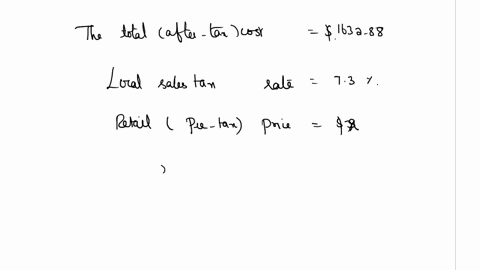 The total (after-tax) cost = $.1632.88
Local sales tax rate = 7.3 %.
Retail ( Pre-tax) price = $x
)